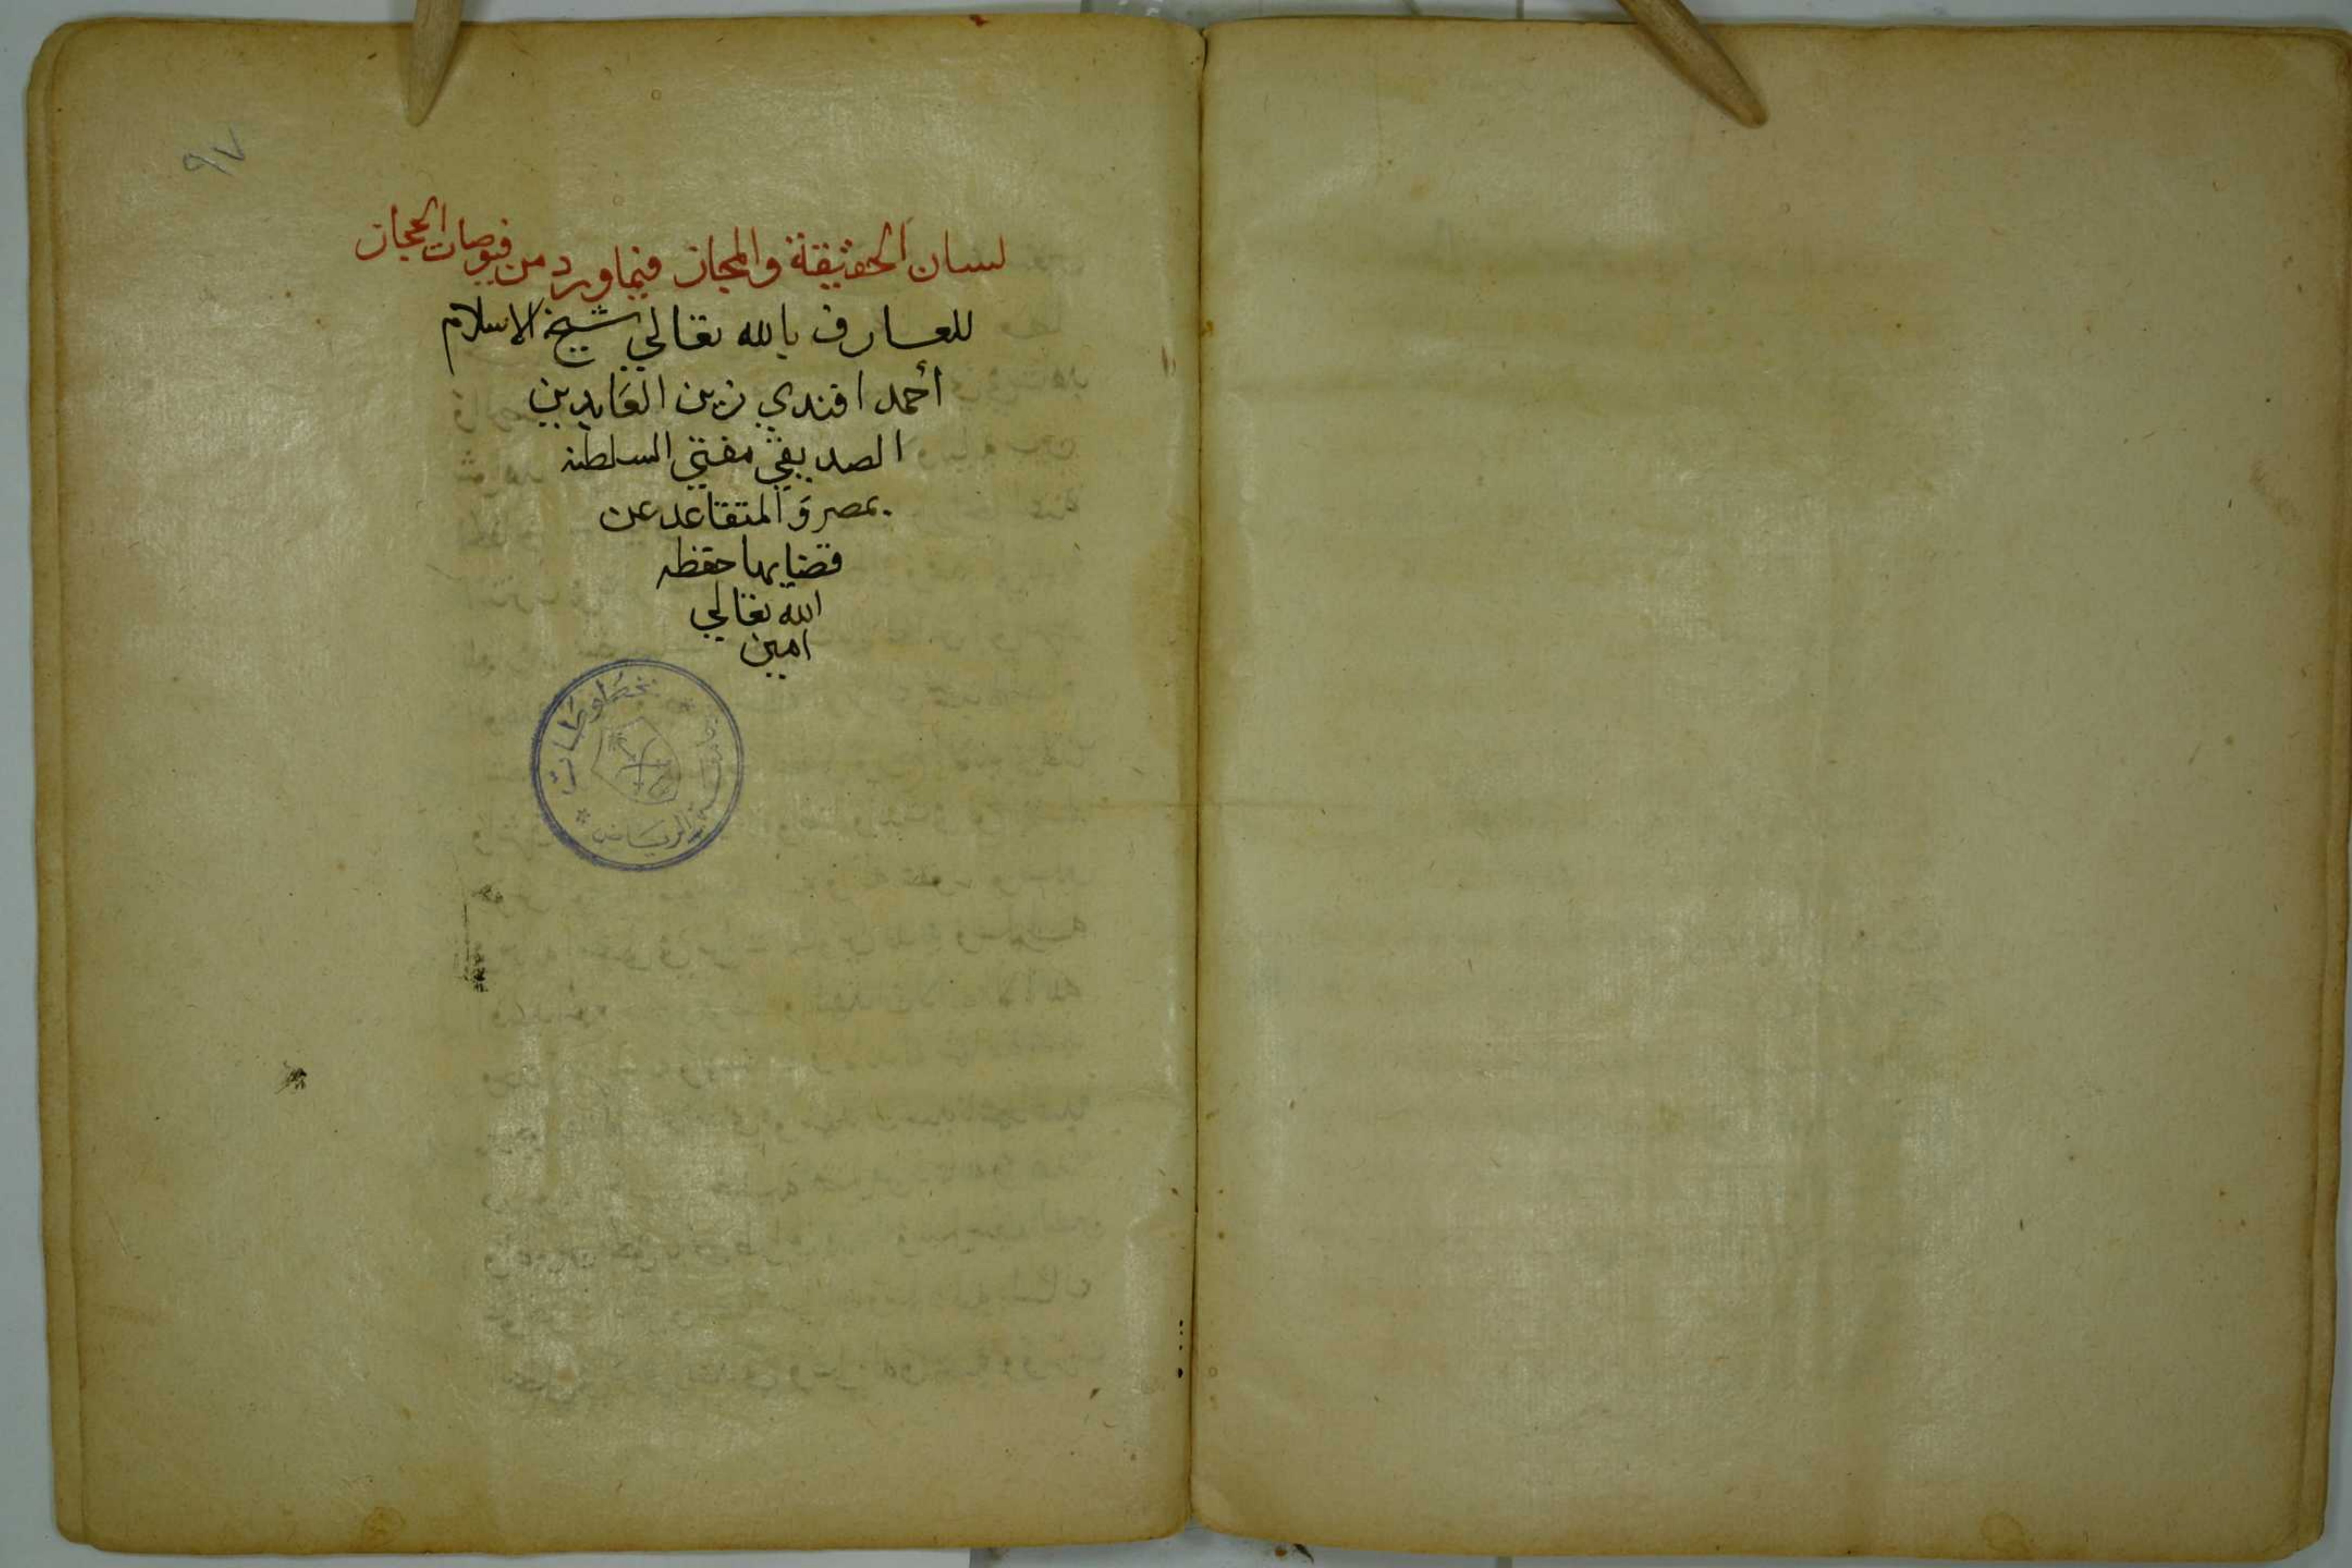 ٩٧
لسان الحقيقة والمجاز فيما ورد من فيوضات الحجاز
للعارف بالله تعالي شيخ الاسلام
أحمد افندي زين العابدين
الصديقي مفتي السلطنه
بمصر والمتقاعد عن
قضايها حفظه
الله تعالي
امين
الرياض